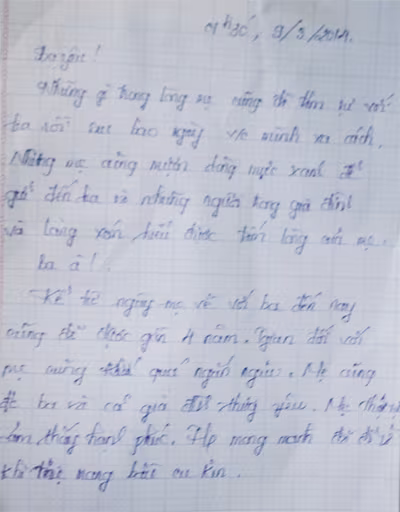 9/3/2014.
Ba yêu!
Những gì trong lòng mẹ cũng đã tâm sự với
ba rồi sau bao ngày vc mình xa cách.
Nhưng mẹ cũng muốn dòng mực xanh để
gửi đến ba và những người trong gia đình
và làng xóm hiểu được tấm lòng của mẹ.
ba à!
Kể từ ngày mẹ về với ba đến nay
cũng đã được gần 4 năm. Gian đối với
mẹ cũng quá ngắn ngủi. Mẹ cũng
đc ba và cả gia đình thương yêu. Mẹ
lắm tháng hạnh phúc. Hp mong manh đã
khi mang bầu cu kin.